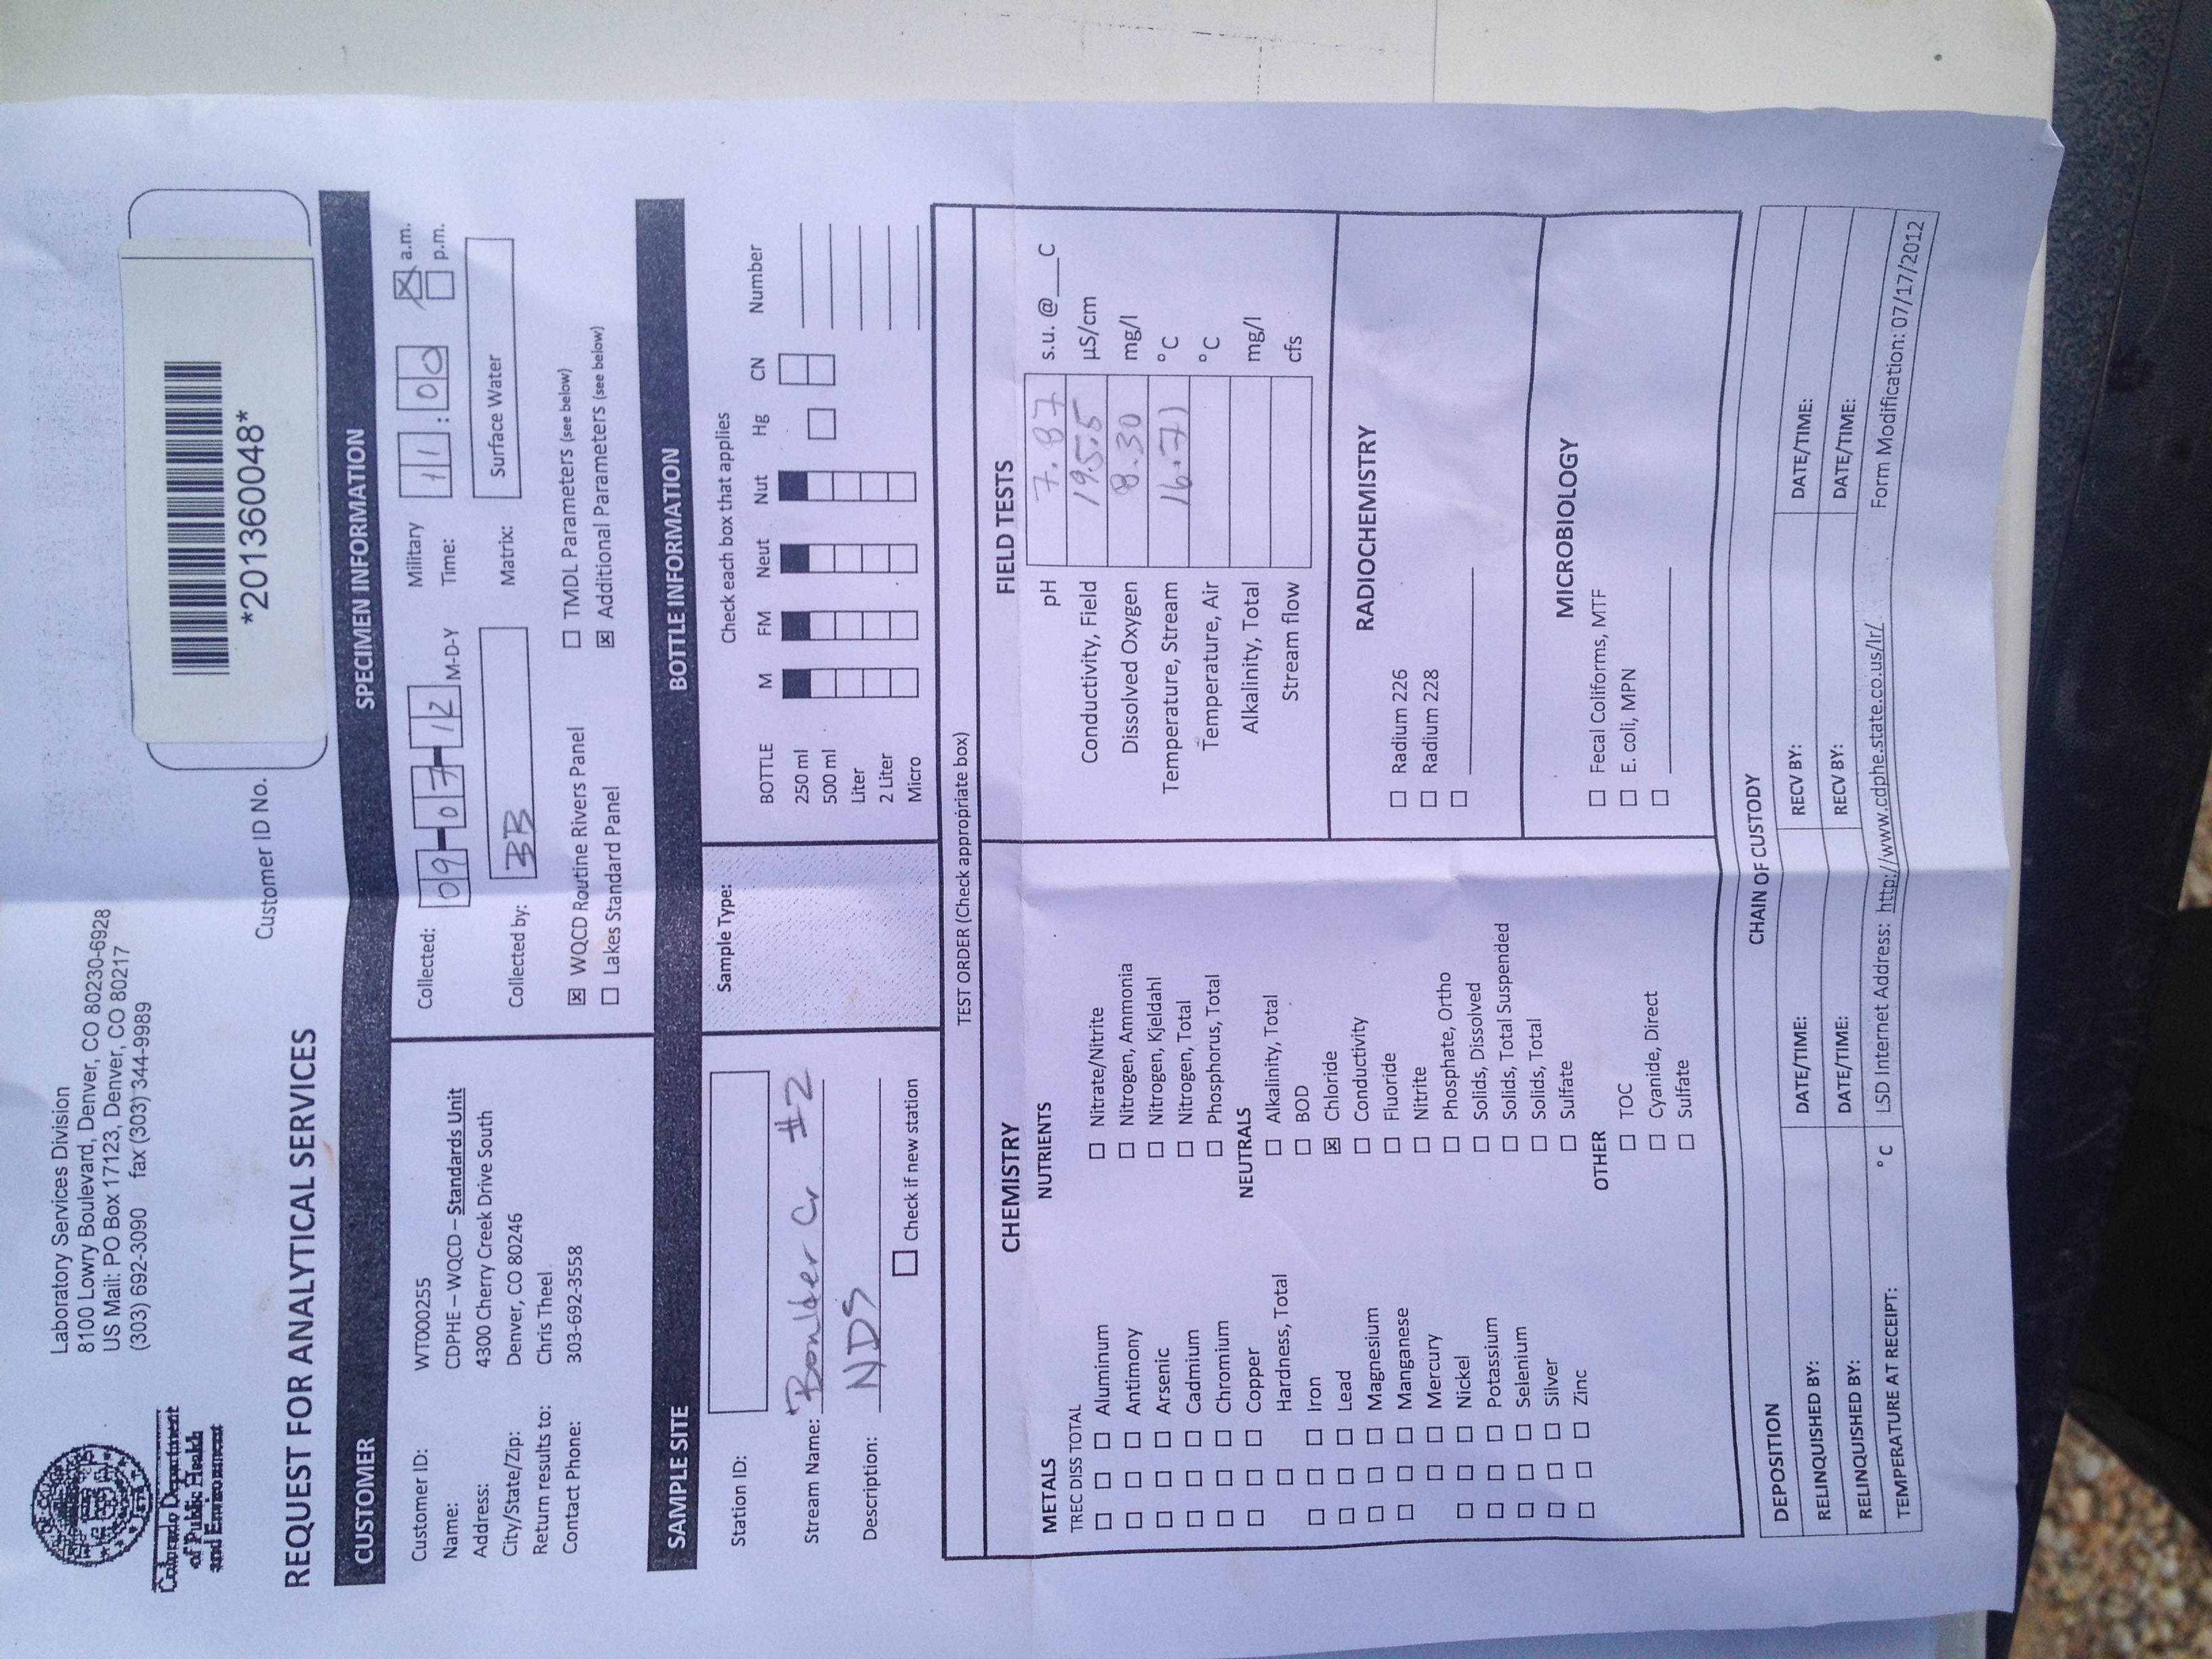 Colorado Department
of Public Health
and Environment
Laboratory Services Division
8100 Lowry Boulevard, Denver, CO 80230-6928
US Mail: PO Box 17123, Denver, CO 80217
(303) 692-3090 fax (303) 344-9989
Customer ID No.
*201360048*
REQUEST FOR ANALYTICAL SERVICES
CUSTOMER
SPECIMEN INFORMATION
Customer ID: WT000255
Name: CDPHE – WQCD – Standards Unit
Address: 4300 Cherry Creek Drive South
City/State/Zip: Denver, CO 80246
Return results to: Chris Theel
Contact Phone: 303-692-3558
Collected: 09-07-12 M-D-Y
Military Time: 11:00 ☒ a.m. ☐ p.m.
Collected by: BB
Matrix: Surface Water
☒ WQCD Routine Rivers Panel
☐ TMDL Parameters (see below)
☐ Lakes Standard Panel
☒ Additional Parameters (see below)
SAMPLE SITE
BOTTLE INFORMATION
Station ID:
Stream Name: Boulder Cr #2
Description: NDS
☐ Check if new station
Sample Type:
Check each box that applies
BOTTLE M FM Neut Nut Hg CN Number
250 ml
500 ml
Liter
2 Liter
Micro
TEST ORDER (Check appropriate box)
CHEMISTRY
METALS
TREC DISS TOTAL
☐ ☐ ☐ Aluminum
☐ ☐ ☐ Antimony
☐ ☐ ☐ Arsenic
☐ ☐ ☐ Cadmium
☐ ☐ ☐ Chromium
☐ ☐ ☐ Copper
☐ Hardness, Total
☐ ☐ ☐ Iron
☐ ☐ ☐ Lead
☐ ☐ ☐ Magnesium
☐ ☐ ☐ Manganese
☐ ☐ Mercury
☐ ☐ ☐ Nickel
☐ ☐ ☐ Potassium
☐ ☐ ☐ Selenium
☐ ☐ ☐ Silver
☐ ☐ ☐ Zinc
NUTRIENTS
☐ Nitrate/Nitrite
☐ Nitrogen, Ammonia
☐ Nitrogen, Kjeldahl
☐ Nitrogen, Total
☐ Phosphorus, Total
NEUTRALS
☐ Alkalinity, Total
☐ BOD
☒ Chloride
☐ Conductivity
☐ Fluoride
☐ Nitrite
☐ Phosphate, Ortho
☐ Solids, Dissolved
☐ Solids, Total Suspended
☐ Solids, Total
☐ Sulfate
OTHER
☐ TOC
☐ Cyanide, Direct
☐ Sulfate
FIELD TESTS
pH 7.87 s.u. @___C
Conductivity, Field 195.5 µS/cm
Dissolved Oxygen 8.30 mg/l
Temperature, Stream °C
Temperature, Air °C
Alkalinity, Total mg/l
Stream flow cfs
RADIOCHEMISTRY
☐ Radium 226
☐ Radium 228
☐
MICROBIOLOGY
☐ Fecal Coliforms, MTF
☐ E. coli, MPN
☐
CHAIN OF CUSTODY
DEPOSITION
RELINQUISHED BY: DATE/TIME: RECV BY: DATE/TIME:
RELINQUISHED BY: DATE/TIME: RECV BY: DATE/TIME:
TEMPERATURE AT RECEIPT: °C LSD Internet Address: http://www.cdphe.state.co.us/lr/ Form Modification: 07/17/2012